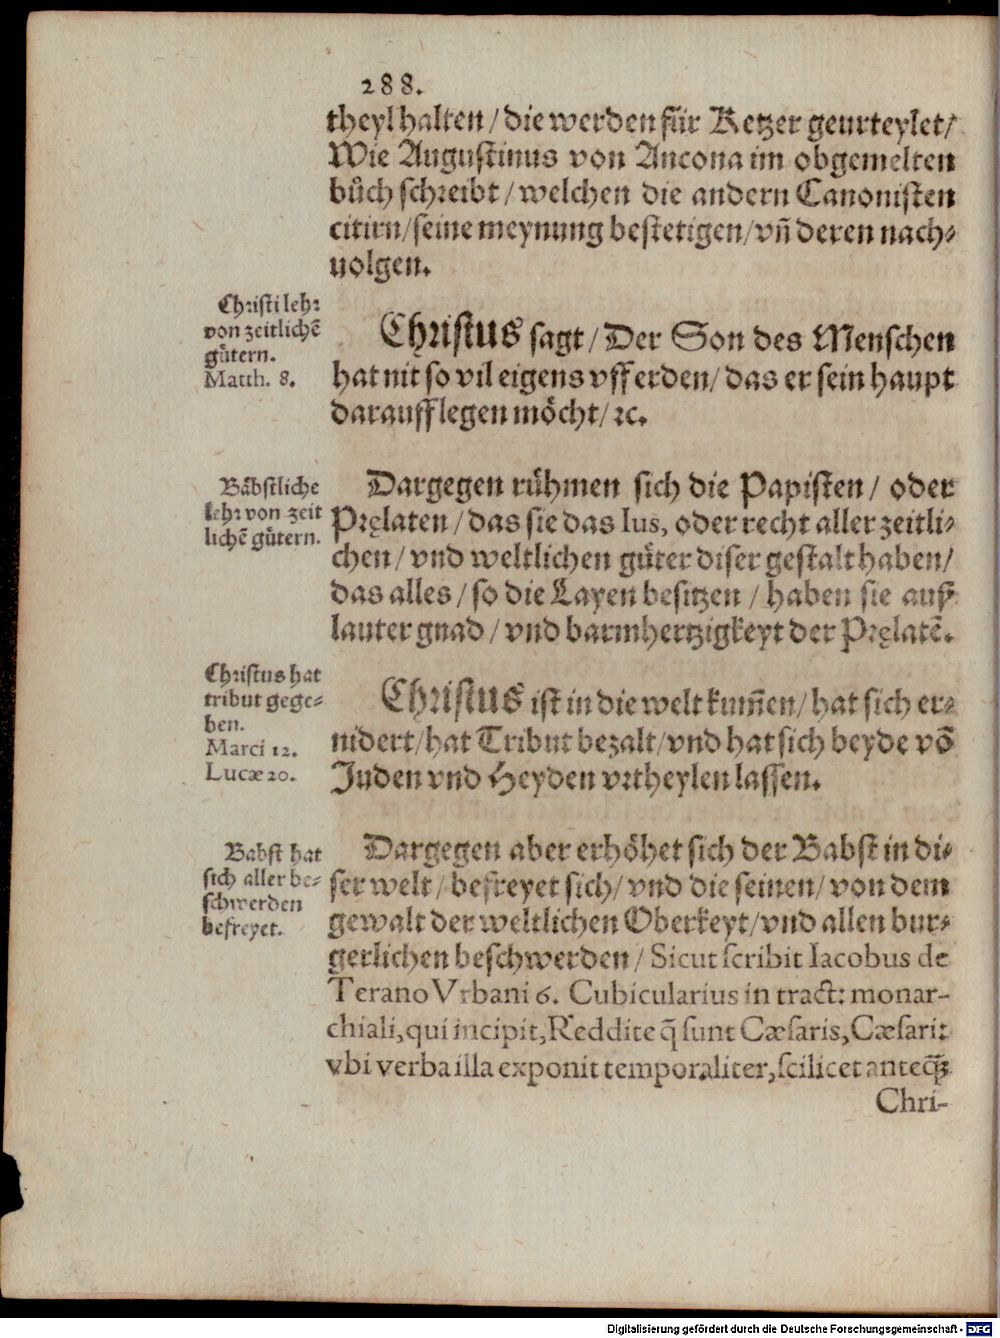 288.
theyl halten / die werden für Ketzer geurteylet /
Wie Augustinus von Ancona im obgemelten
bůch schreibt / welchen die andern Canonisten
citirn / seine meynung bestetigen / vñ deren nach⸗
uolgen.
Christi lehr
von zeitlichẽ
gütern.
Matth. 8.
Christus sagt / Der Son des Menschen
hat nit so vil eigens vff erden / das er sein haupt
darauff legen möcht / ꝛc.
Bäbstliche
lehr von zeit
lichẽ gütern.
Dargegen rühmen sich die Papisten / oder
Pręlaten / das sie das Ius, oder recht aller zeitli⸗
chen / vnd weltlichen güter diser gestalt haben /
das alles / so die Layen besitzen / haben sie auß
lauter gnad / vnd barmhertzigkeyt der Pręlatẽ.
Christus hat
tribut gege⸗
ben.
Marci 12.
Lucæ 20.
Christus ist in die welt kum̃en / hat sich er⸗
nidert / hat Tribut bezalt / vnd hat sich beyde võ
Juden vnd Heyden vrtheylen lassen.
Babst hat
sich aller be⸗
schwerden
befreyet.
Dargegen aber erhöhet sich der Babst in di⸗
ser welt / befreyet sich / vnd die seinen / von dem
gewalt der weltlichen Oberkeyt / vnd allen bur⸗
gerlichen beschwerden / Sicut scribit Iacobus de
Terano Vrbani 6. Cubicularius in tract: monar-
chiali, qui incipit, Reddite q̃ sunt Cæsaris, Cæsari:
vbi verba illa exponit temporaliter, scilicet anteq̃ꝫ
Chri-
Digitalisierung gefördert durch die Deutsche Forschungsgemeinschaft - DFG